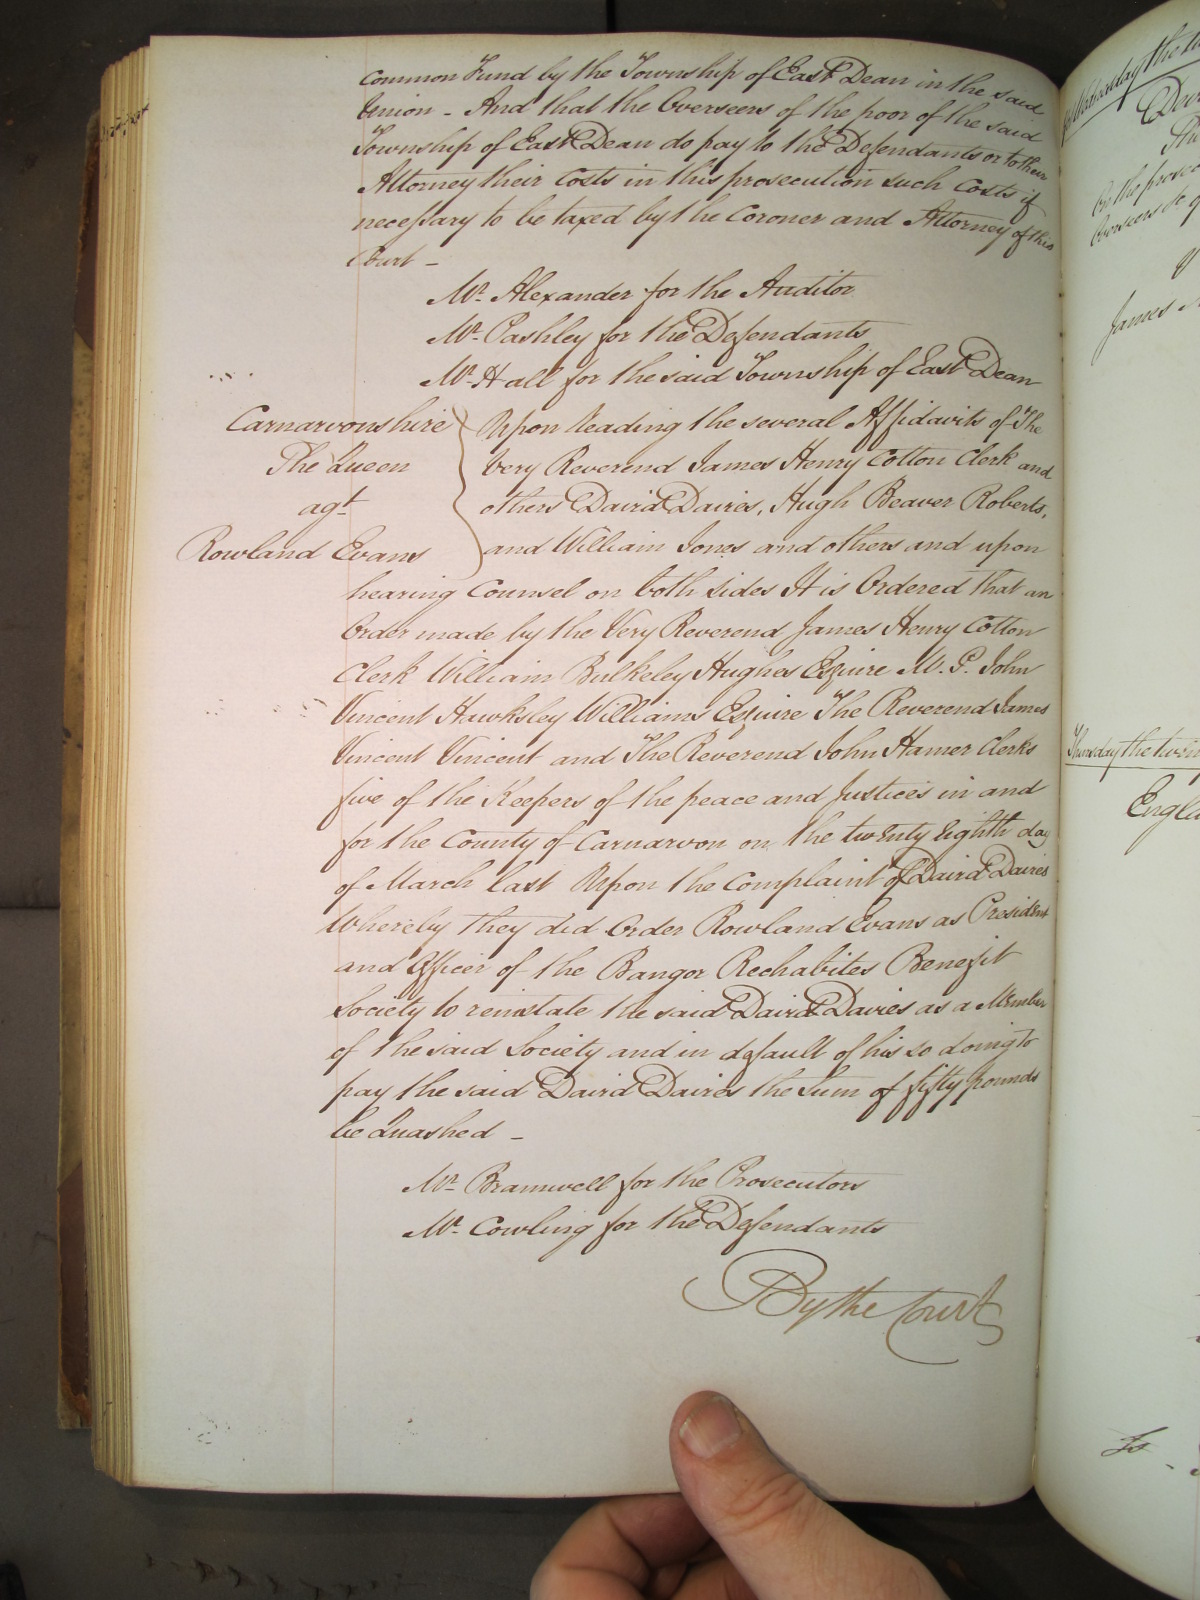 Common Fund by the Township of East Dean in the said
Union - And that the Overseers of the poor of the said
Township of East Dean do pay to the Defendants or to their
Attorney their Costs in this prosecution such Costs if
necessary to be taxed by the Coroner and Attorney of this
Court -
Mr. Alexander for the Auditor
Mr. Pashley for the Defendants
Mr. Hall for the said Township of East Dean
Carnarvonshire
The Queen
agt.
Rowland Evans
Upon Reading the several Affidavits of The
Very Reverend James Henry Cotton Clerk and
others David Davies, Hugh Beaver Roberts,
and William Jones and others and upon
hearing Counsel on both sides It is Ordered that an
Order made by the Very Reverend James Henry Cotton
Clerk William Bulkeley Hughes Esquire M.P. John
Vincent Hawksley Williams Esquire The Reverend James
Vincent Vincent and The Reverend John Hamer Clerks
five of the Keepers of the peace and Justices in and
for the County of Carnarvon on the twenty eighth day
of March last Upon the Complaint of David Davies
Whereby they did Order Rowland Evans as President
and Officer of the Bangor Rechabites Benefit
Society to reinstate the said David Davies as a Member
of the said Society and in default of his so doing to
pay the said David Davies the Sum of fifty pounds
be Quashed -
Mr. Bramwell for the Prosecutors
Mr. Cowling for the Defendants
By the Court
Wednesday the
James
Thursday the twen
Engla